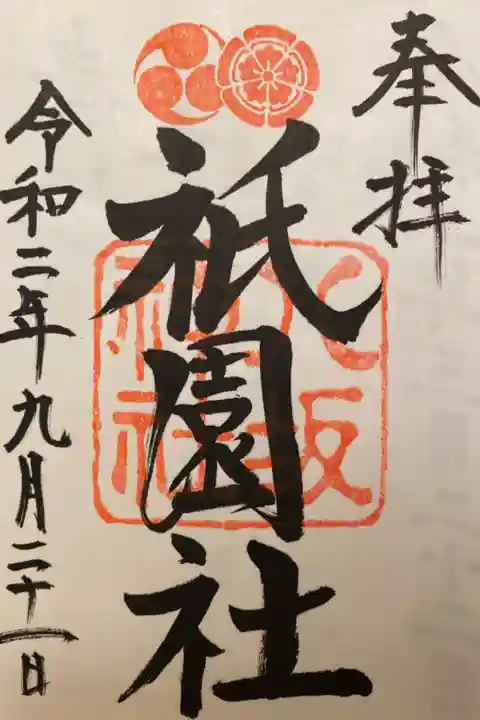 奉拝
祇園社
八坂
神社
令和二年九月二十一日